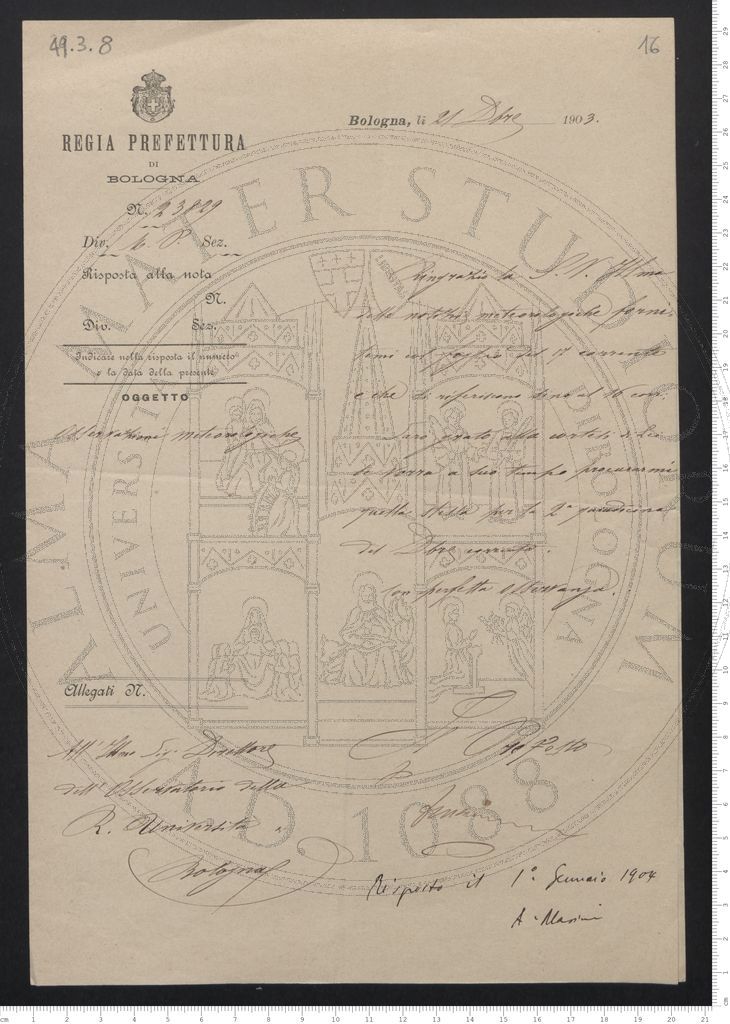 49.3.8
16
REGIA PREFETTURA
DI
BOLOGNA
Bologna, li 21 Dbre 1903.
N. 23829
Div. Sez.
Risposta alla nota
N.
Div. Sez.
Indicare nella risposta il numero
e la data della presente
OGGETTO
Osservazioni meteorologiche
Ringrazio la S. V. Illma
delle notizie meteorologiche forni
temi col foglio del 17 corrente
e che si riferiscono sino al 16 corr.
Sarò grato alla cortesia di Lei
se vorrà a suo tempo procurarmi
quelle stesse per la 2a quindicina
del Dbre corrente.
Con perfetta osservanza.
Allegati N.
Il Prefetto
All' Illmo Sig. Direttore
dell' Osservatorio della
R. Università
Bologna
Risposto il 1° Gennaio 1904
A. Masini
ALMA MATER STUDIORUM
UNIVERSITAS
BONONIA
A.D. 1088